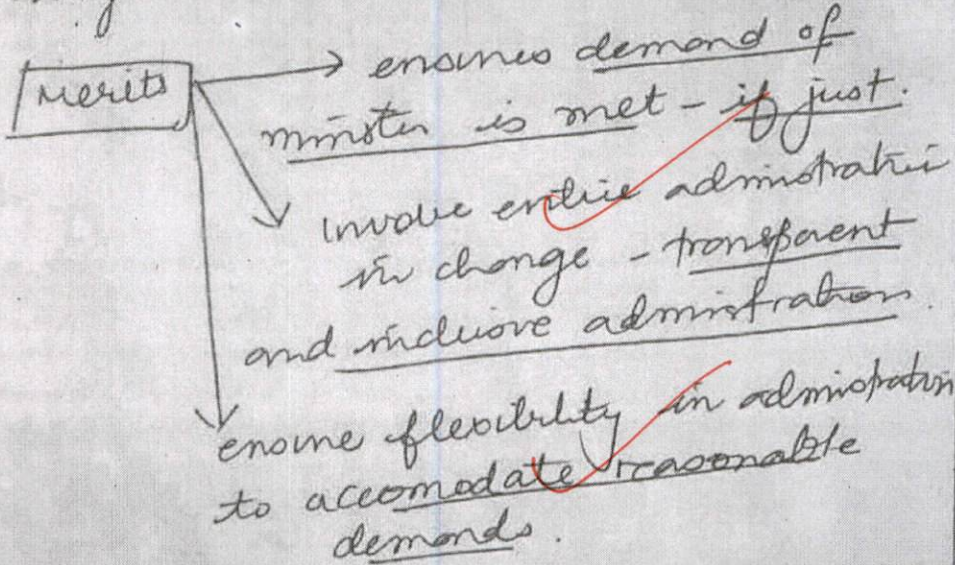 Merits
ensures demand of
minister is met - if just.
involve entire administration
in change - transparent
and inclusive administration.
ensure flexibility in administration
to accomodate reasonable
demands.